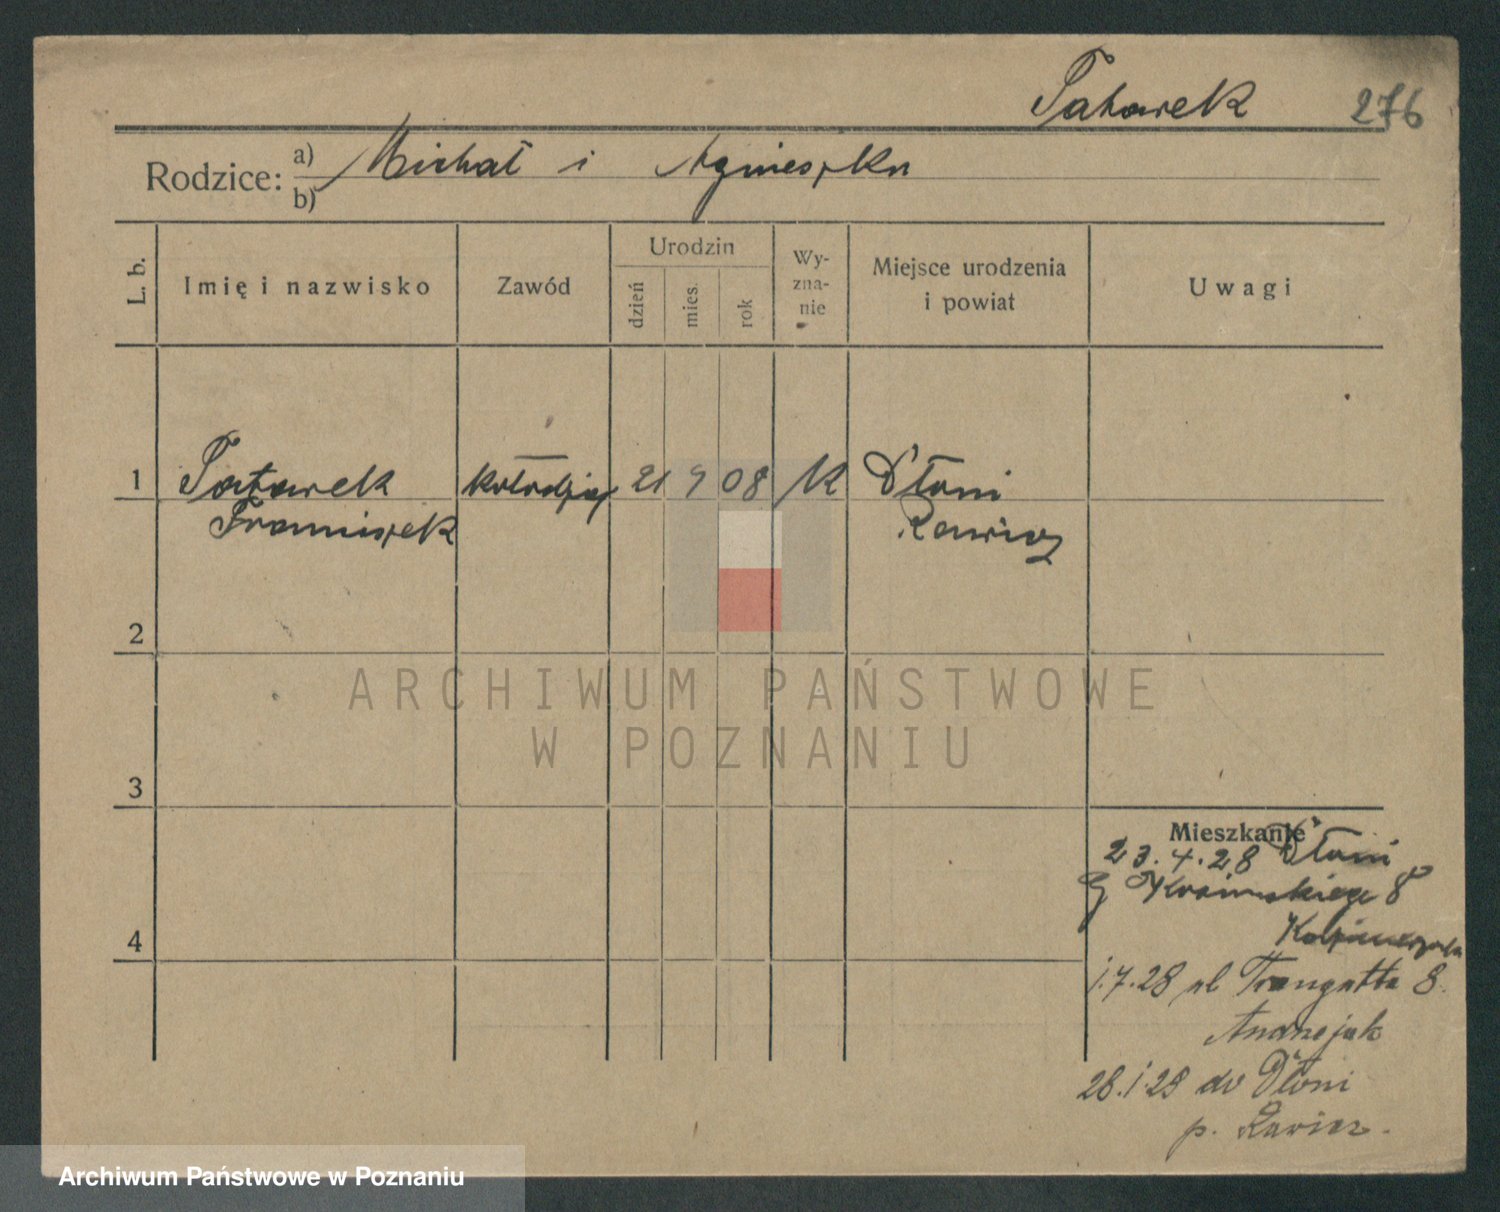 Tatarek 276
Rodzice: a) Michał i Agnieszka
b)
L. b. Imię i nazwisko Zawód Urodzin dzień mies. rok Wyznanie Miejsce urodzenia i powiat Uwagi
1 Tatarek kołodziej 21 9 08 K Dłoni
Franciszek Rawicz
2
ARCHIWUM PAŃSTWOWE
W POZNANIU
3
Mieszkanie
23.4.28 Dłoni
8
4
1.7.28 ul Traugutta 8.
Andrzejak
28.1.29 do Dłoni
p. Rawicz.
Archiwum Państwowe w Poznaniu